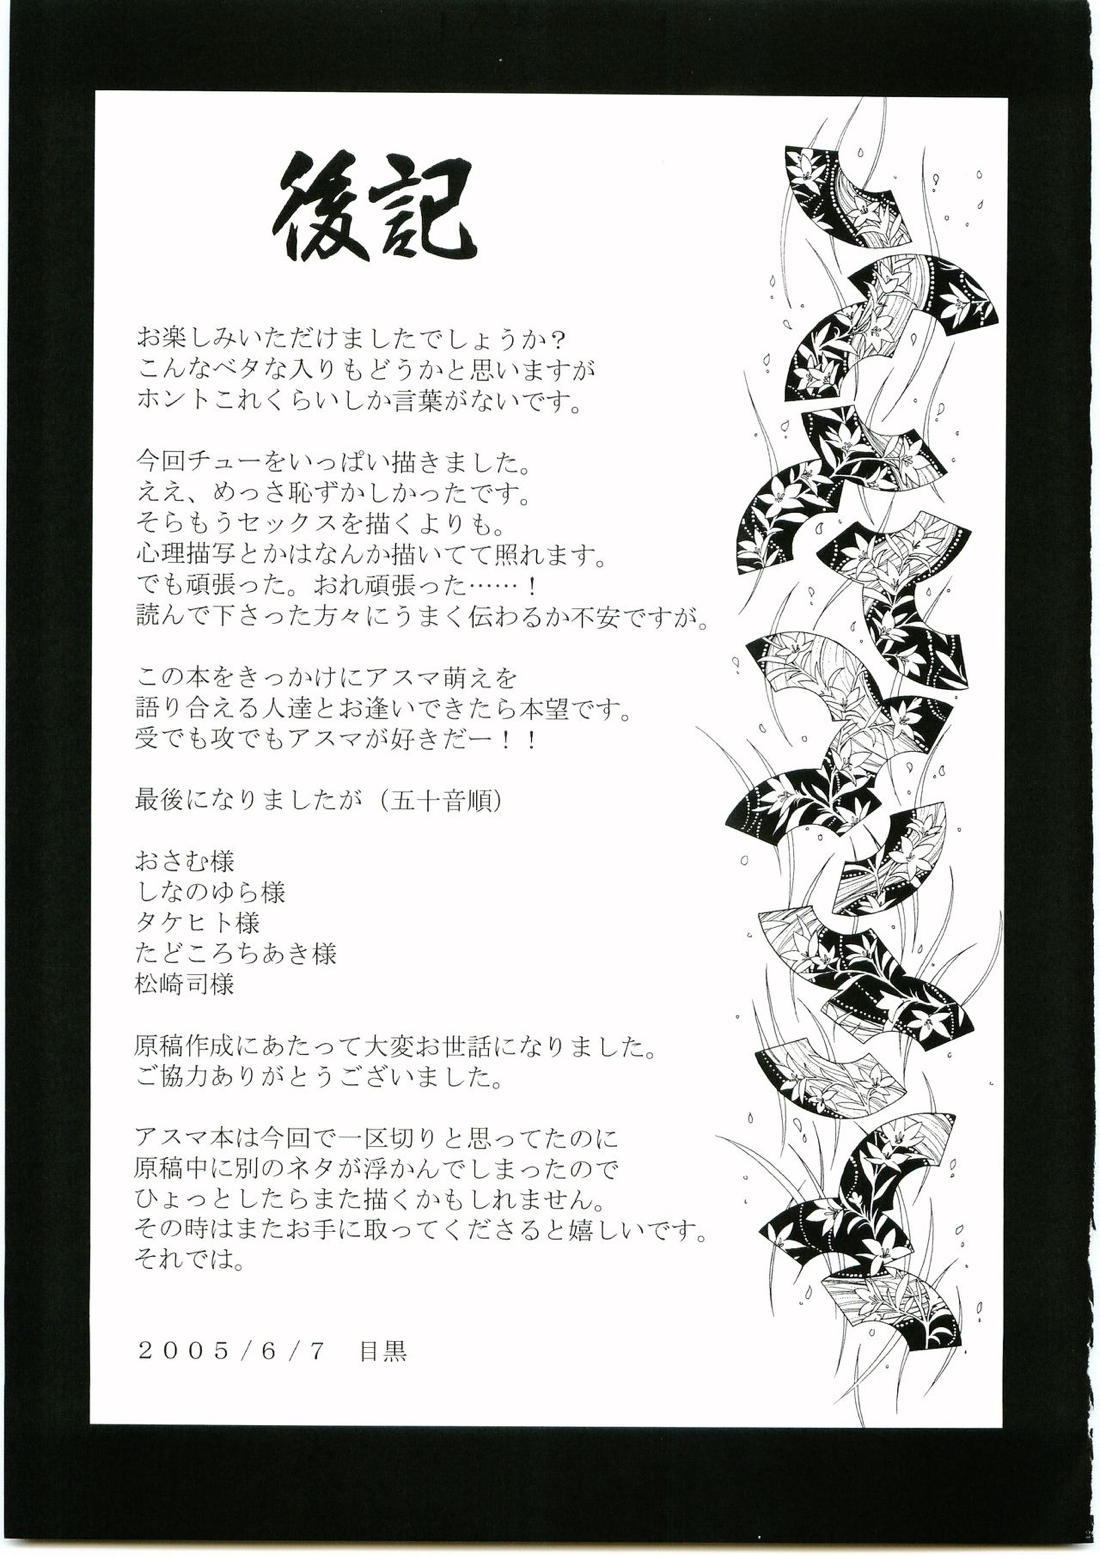 後記
お楽しみいただけましたでしょうか？
こんなベタな入りもどうかと思いますが
ホントこれくらいしか言葉がないです。
今回チューをいっぱい描きました。
ええ、めっさ恥ずかしかったです。
そらもうセックスを描くよりも。
心理描写とかはなんか描いてて照れます。
でも頑張った。おれ頑張った……！
読んで下さった方々にうまく伝わるか不安ですが。
この本をきっかけにアスマ萌えを
語り合える人達とお逢いできたら本望です。
受でも攻でもアスマが好きだー！！
最後になりましたが（五十音順）
おさむ様
しなのゆら様
タケヒト様
たどころちあき様
松崎司様
原稿作成にあたって大変お世話になりました。
ご協力ありがとうございました。
アスマ本は今回で一区切りと思ってたのに
原稿中に別のネタが浮かんでしまったので
ひょっとしたらまた描くかもしれません。
その時はまたお手に取ってくださると嬉しいです。
それでは。
２００５/６/７　目黒